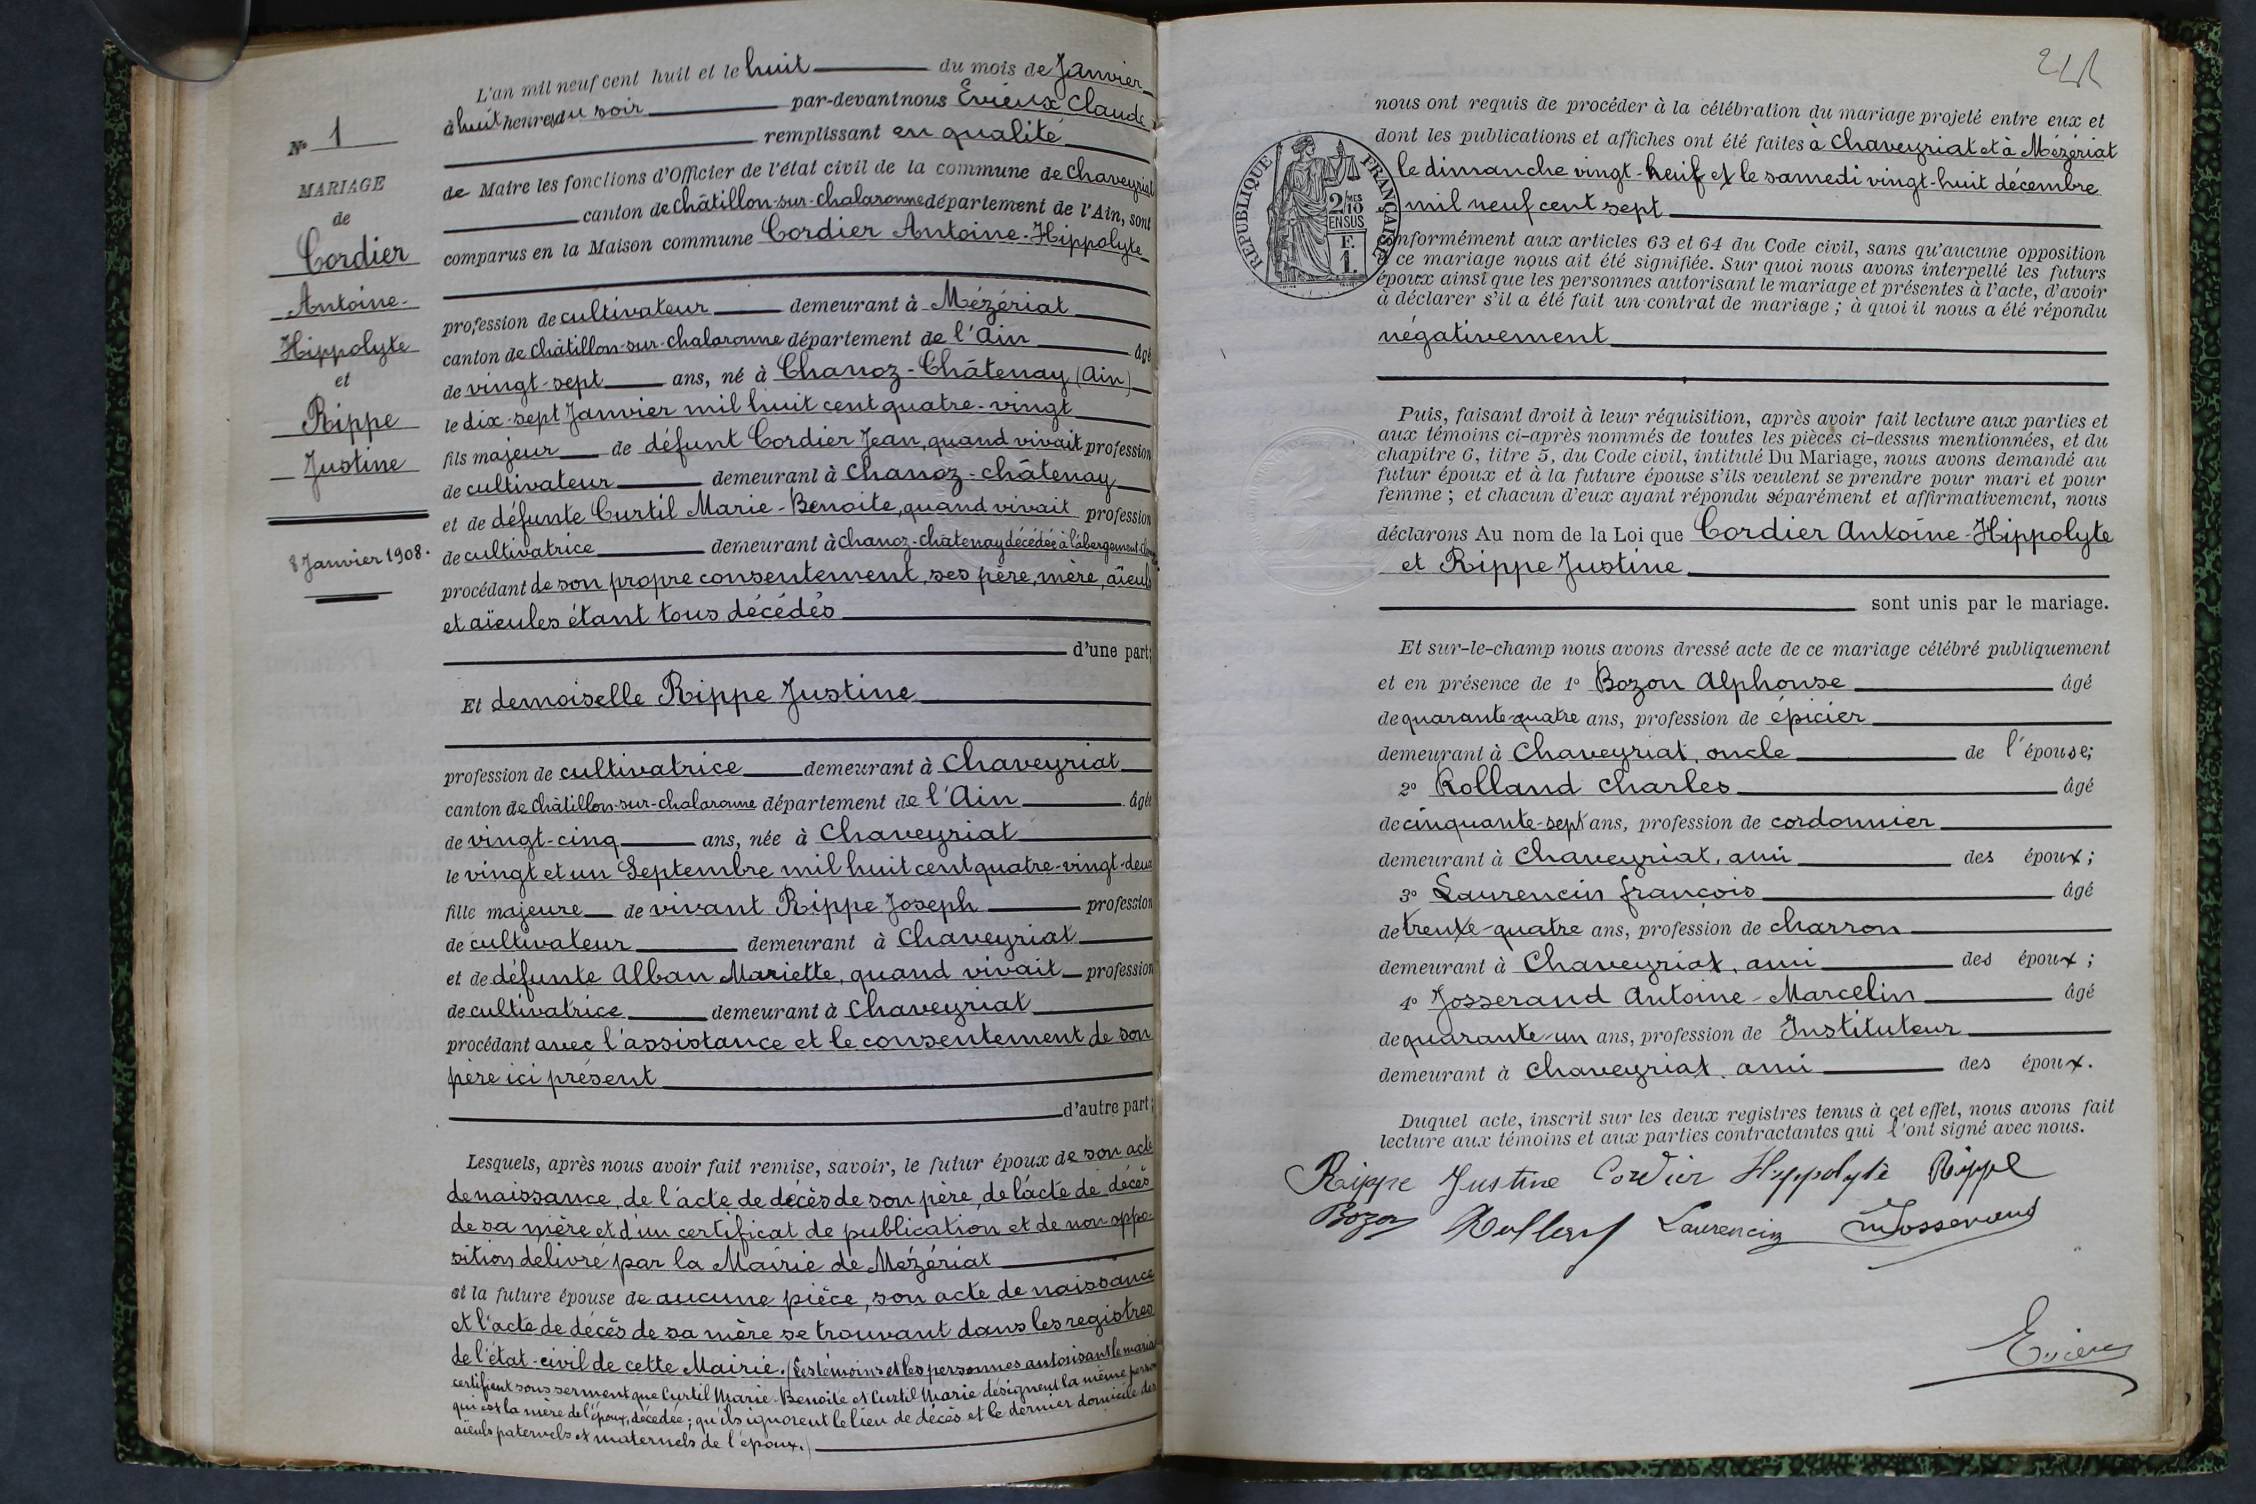 N° 1
MARIAGE
de
Cordier
Antoine-
Hippolyte
et
Rippe
Justine
8 Janvier 1908.
L'an mil neuf cent huit et le huit du mois de Janvier
à huit heures du soir par-devant nous Evieux Claude
remplissant en qualité
de Maire les fonctions d'Officier de l'état civil de la commune de Chaveyriat
canton de Châtillon-sur-Chalaronne département de l'Ain, sont
comparus en la Maison commune Cordier Antoine-Hippolyte
profession de cultivateur demeurant à Mézériat
canton de Châtillon-sur-Chalaronne département de l'Ain âgé
de vingt-sept ans, né à Chanoz-Châtenay (Ain)
le dix-sept Janvier mil huit cent quatre-vingt
fils majeur de défunt Cordier Jean, quand vivait profession
de cultivateur demeurant à Chanoz-châtenay
et de défunte Curtil Marie-Benoite, quand vivait profession
de cultivatrice demeurant à chanoz-châtenay décédée à l'abergement
procédant de son propre consentement, ses père, mère, aïeuls
et aïeules étant tous décédés
d'une part;
Et demoiselle Rippe Justine
profession de cultivatrice demeurant à Chaveyriat
canton de Châtillon-sur-chalaronne département de l'Ain âgée
de vingt-cinq ans, née à Chaveyriat
le vingt et un Septembre mil huit cent quatre-vingt-deux
fille majeure de vivant Rippe Joseph profession
de cultivateur demeurant à Chaveyriat
et de défunte Alban Mariette, quand vivait profession
de cultivatrice demeurant à Chaveyriat
procédant avec l'assistance et le consentement de son
père ici présent
d'autre part;
Lesquels, après nous avoir fait remise, savoir, le futur époux de son acte
de naissance, de l'acte de décès de son père, de l'acte de décès
de sa mère et d'un certificat de publication et de non-oppo-
sition delivré par la Mairie de Mézériat
et la future épouse de aucune pièce, son acte de naissance
et l'acte de décès de sa mère se trouvant dans les registres
de l'état-civil de cette Mairie. (Les témoins et les personnes autorisant le mariage
certifient sous serment que Curtil Marie-Benoite et Curtil Marie désignent la même personne
qui est la mère de l'époux, décédée; qu'ils ignorent le lieu de décès et le dernier domicile des
aïeuls paternels et maternels de l'époux.)
nous ont requis de procéder à la célébration du mariage projeté entre eux et
dont les publications et affiches ont été faites à Chaveyriat et à Mézériat
le dimanche vingt-neuf et le samedi vingt-huit décembre
mil neuf cent sept
RÉPUBLIQUE FRANÇAISE
2/10 MES
EN SUS
F.
1.
conformément aux articles 63 et 64 du Code civil, sans qu'aucune opposition
à ce mariage nous ait été signifiée. Sur quoi nous avons interpellé les futurs
époux ainsi que les personnes autorisant le mariage et présentes à l'acte, d'avoir
à déclarer s'il a été fait un contrat de mariage; à quoi il nous a été répondu
négativement
Puis, faisant droit à leur réquisition, après avoir fait lecture aux parties et
aux témoins ci-après nommés de toutes les pièces ci-dessus mentionnées, et du
chapitre 6, titre 5, du Code civil, intitulé Du Mariage, nous avons demandé au
futur époux et à la future épouse s'ils veulent se prendre pour mari et pour
femme; et chacun d'eux ayant répondu séparément et affirmativement, nous
déclarons Au nom de la Loi que Cordier Antoine-Hippolyte
et Rippe Justine
sont unis par le mariage.
Et sur-le-champ nous avons dressé acte de ce mariage célébré publiquement
et en présence de 1° Bozon Alphonse âgé
de quarante-quatre ans, profession de épicier
demeurant à Chaveyriat, oncle de l'épouse;
2° Rolland Charles âgé
de cinquante-sept ans, profession de cordonnier
demeurant à Chaveyriat, ami des époux;
3° Laurencin françois âgé
de trente-quatre ans, profession de charron
demeurant à Chaveyriat, ami des époux;
4° Josserand Antoine-Marcelin âgé
de quarante-un ans, profession de Instituteur
demeurant à Chaveyriat, ami des époux.
Duquel acte, inscrit sur les deux registres tenus à cet effet, nous avons fait
lecture aux témoins et aux parties contractantes qui l'ont signé avec nous.
Rippe Justine Cordier Hyppolyte Rippe
Bozon Rolland Laurencin Josserand
Evieux